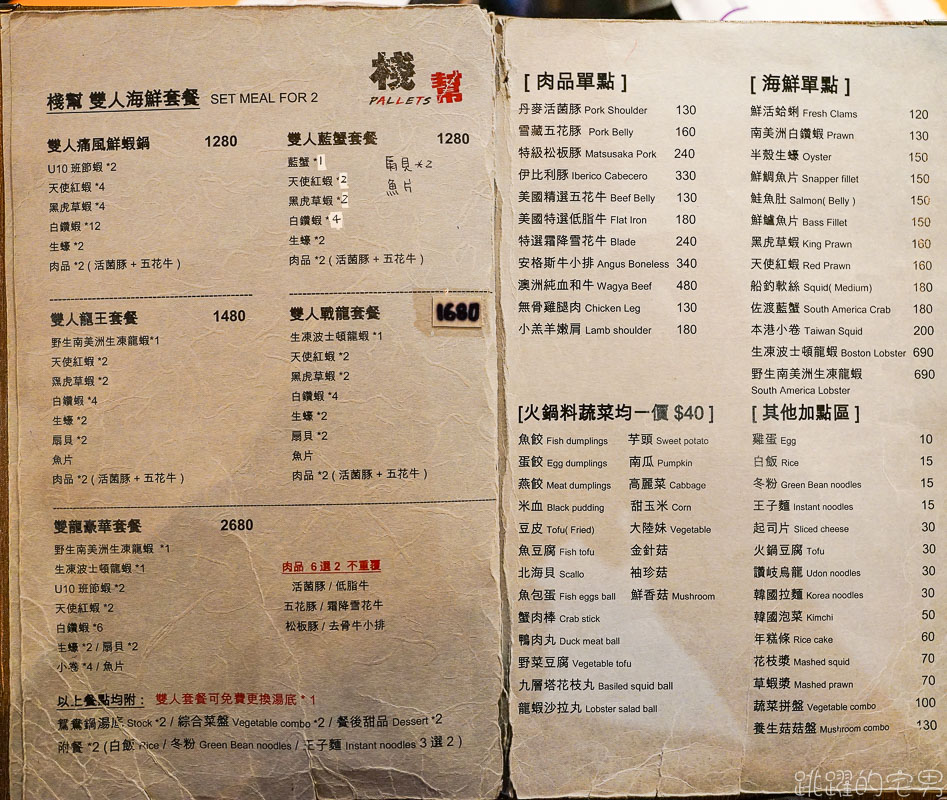 棧幫
PALLETS
棧幫 雙人海鮮套餐 SET MEAL FOR 2
雙人痛風鮮蝦鍋 1280
U10 班節蝦 *2
天使紅蝦 *4
黑虎草蝦 *4
白鑽蝦 *12
生蠔 *2
肉品 *2 ( 活菌豚 + 五花牛 )
雙人藍蟹套餐 1280
藍蟹 *1
天使紅蝦 *2
黑虎草蝦 *2
白鑽蝦 *4
生蠔 *2
肉品 *2 ( 活菌豚 + 五花牛 )
扇貝*2
魚片
雙人龍王套餐 1480
野生南美洲生凍龍蝦*1
天使紅蝦 *2
黑虎草蝦 *2
白鑽蝦 *4
生蠔 *2
扇貝 *2
魚片
肉品 *2 ( 活菌豚 + 五花牛 )
雙人戰龍套餐 1680
生凍波士頓龍蝦 *1
天使紅蝦 *2
黑虎草蝦 *2
白鑽蝦 *4
生蠔 *2
扇貝 *2
魚片
肉品 *2 ( 活菌豚 + 五花牛 )
雙龍豪華套餐 2680
野生南美洲生凍龍蝦 *1
生凍波士頓龍蝦 *1
U10 班節蝦 *2
天使紅蝦 *2
白鑽蝦 *6
生蠔 *2 / 扇貝 *2
小卷 *4 / 魚片
肉品 6 選 2 不重覆
活菌豚 / 低脂牛
五花豚 / 霜降雪花牛
松板豚 / 去骨牛小排
以上餐點均附： 雙人套餐可免費更換湯底 * 1
鴛鴦鍋湯底 Stock *2 / 綜合菜盤 Vegetable combo *2 / 餐後甜品 Dessert *2
附餐 *2 ( 白飯 Rice / 冬粉 Green Bean noodles / 王子麵 Instant noodles 3 選 2 )
[ 肉品單點 ]
丹麥活菌豚 Pork Shoulder 130
雪藏五花豚 Pork Belly 160
特級松板豚 Matsusaka Pork 240
伊比利豚 Iberico Cabecero 330
美國精選五花牛 Beef Belly 130
美國特選低脂牛 Flat Iron 180
特選霜降雪花牛 Blade 240
安格斯牛小排 Angus Boneless 340
澳洲純血和牛 Wagya Beef 480
無骨雞腿肉 Chicken Leg 130
小羔羊嫩肩 Lamb shoulder 180
[ 海鮮單點 ]
鮮活蛤蜊 Fresh Clams 120
南美洲白鑽蝦 Prawn 130
半殼生蠔 Oyster 150
鮮鯛魚片 Snapper fillet 150
鮭魚肚 Salmon( Belly ) 150
鮮鱸魚片 Bass Fillet 150
黑虎草蝦 King Prawn 160
天使紅蝦 Red Prawn 160
船釣軟絲 Squid( Medium) 180
佐渡藍蟹 South America Crab 180
本港小卷 Taiwan Squid 200
生凍波士頓龍蝦 Boston Lobster 690
野生南美洲生凍龍蝦 690
South America Lobster
[火鍋料蔬菜均一價 $40 ]
魚餃 Fish dumplings 芋頭 Sweet potato
蛋餃 Egg dumplings 南瓜 Pumpkin
燕餃 Meat dumplings 高麗菜 Cabbage
米血 Black pudding 甜玉米 Corn
豆皮 Tofu( Fried) 大陸妹 Vegetable
魚豆腐 Fish tofu 金針菇
北海貝 Scallo 袖珍菇
魚包蛋 Fish eggs ball 鮮香菇 Mushroom
蟹肉棒 Crab stick
鴨肉丸 Duck meat ball
野菜豆腐 Vegetable tofu
九層塔花枝丸 Basiled squid ball
龍蝦沙拉丸 Lobster salad ball
[ 其他加點區 ]
雞蛋 Egg 10
白飯 Rice 15
冬粉 Green Bean noodles 15
王子麵 Instant noodles 15
起司片 Sliced cheese 30
火鍋豆腐 Tofu 30
讚岐烏龍 Udon noodles 30
韓國拉麵 Korea noodles 30
韓國泡菜 Kimchi 50
年糕條 Rice cake 60
花枝漿 Mashed squid 70
草蝦漿 Mashed prawn 70
蔬菜拼盤 Vegetable combo 100
養生菇菇盤 Mushroom combo 130
跳躍的宅男